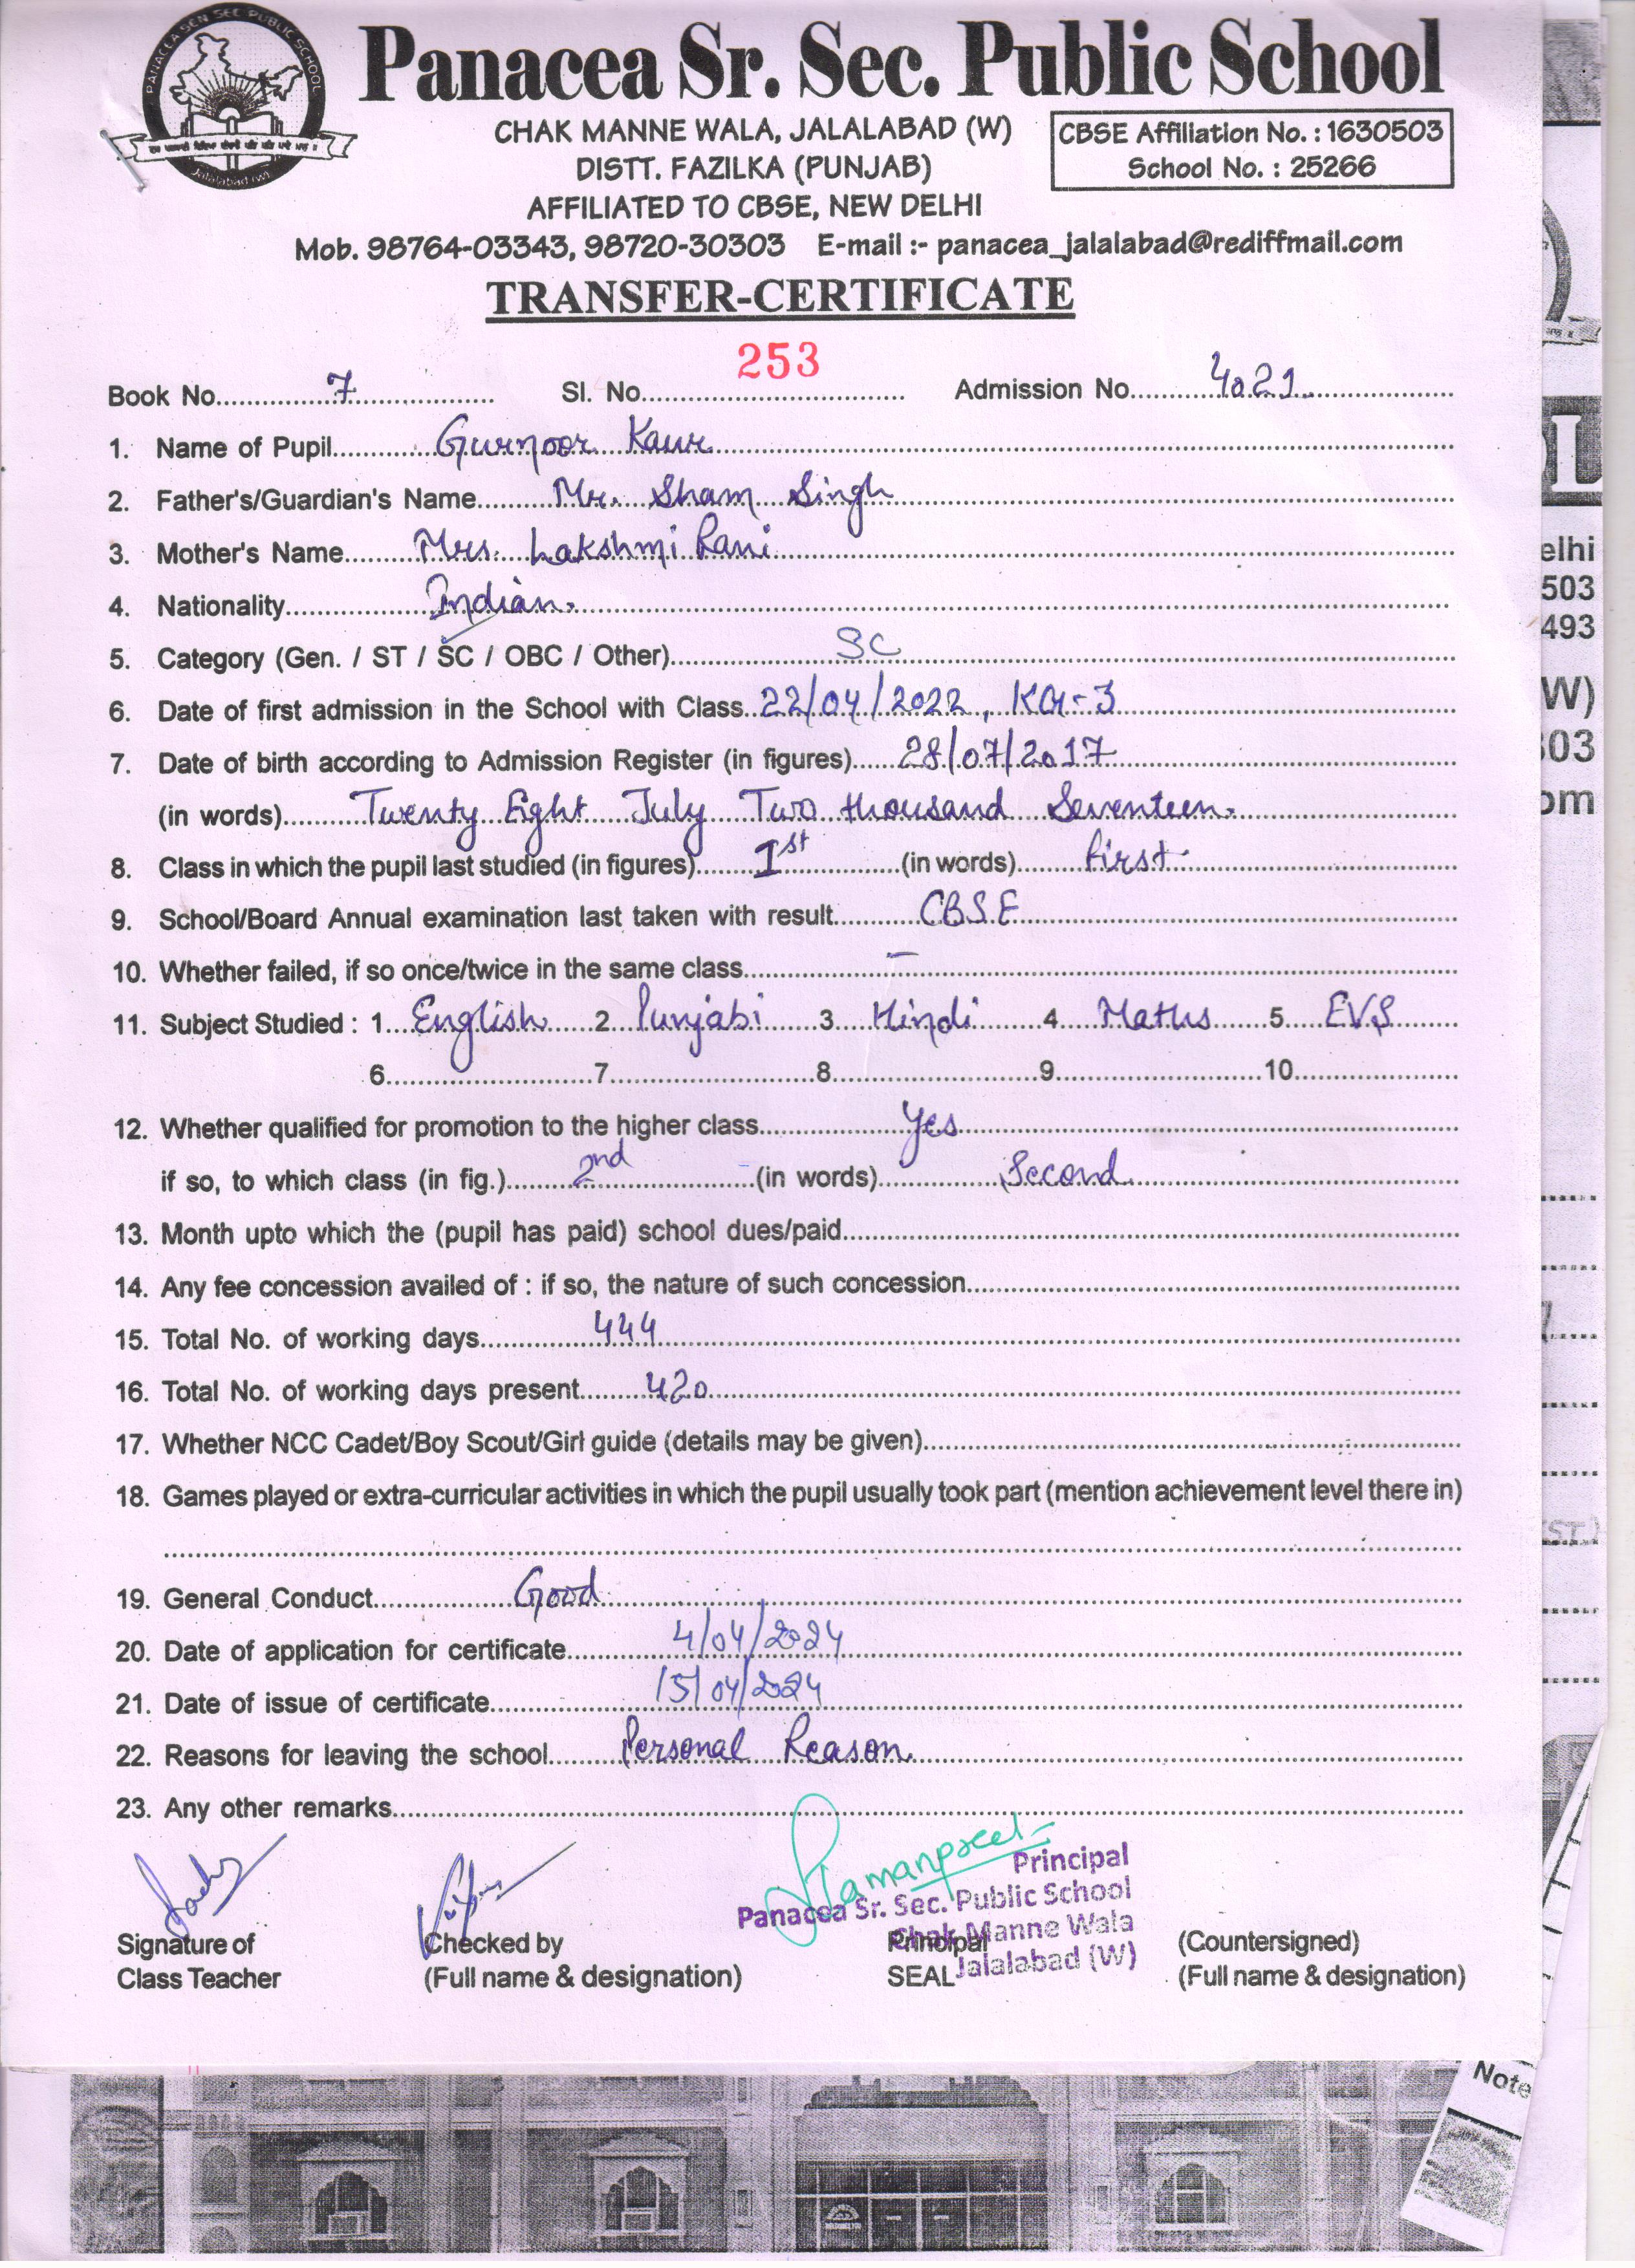 PANACEA SEN SEC PUBLIC SCHOOL
Jalalabad (W)
Panacea Sr. Sec. Public School
CHAK MANNE WALA, JALALABAD (W)
DISTT. FAZILKA (PUNJAB)
AFFILIATED TO CBSE, NEW DELHI
CBSE Affiliation No. : 1630503
School No. : 25266
Mob. 98764-03343, 98720-30303 E-mail :- panacea_jalalabad@rediffmail.com
TRANSFER-CERTIFICATE
Book No. 7 Sl. No. 253 Admission No. 4021
1. Name of Pupil Gurnoor Kaur
2. Father's/Guardian's Name Mr. Sham Singh
3. Mother's Name Mrs. Lakshmi Rani
4. Nationality Indian.
5. Category (Gen. / ST / SC / OBC / Other) SC
6. Date of first admission in the School with Class 22/04/2022, KG-3
7. Date of birth according to Admission Register (in figures) 28/07/2017
(in words) Twenty Eight July Two thousand Seventeen.
8. Class in which the pupil last studied (in figures) 1st (in words) First
9. School/Board Annual examination last taken with result CBSE
10. Whether failed, if so once/twice in the same class –
11. Subject Studied : 1 English 2 Punjabi 3 Hindi 4 Maths 5 EVS
6 7 8 9 10
12. Whether qualified for promotion to the higher class yes
if so, to which class (in fig.) 2nd (in words) Second
13. Month upto which the (pupil has paid) school dues/paid
14. Any fee concession availed of : if so, the nature of such concession
15. Total No. of working days 444
16. Total No. of working days present 420
17. Whether NCC Cadet/Boy Scout/Girl guide (details may be given)
18. Games played or extra-curricular activities in which the pupil usually took part (mention achievement level there in)
19. General Conduct Good
20. Date of application for certificate 4/04/2024
21. Date of issue of certificate 15/04/2024
22. Reasons for leaving the school Personal Reason
23. Any other remarks
Ramanpreet
Principal
Panacea Sr. Sec. Public School
Chak Manne Wala
Jalalabad (W)
Signature of Checked by Principal (Countersigned)
Class Teacher (Full name & designation) SEAL (Full name & designation)
L
elhi
503
493
W)
303
om
ST.)
Note